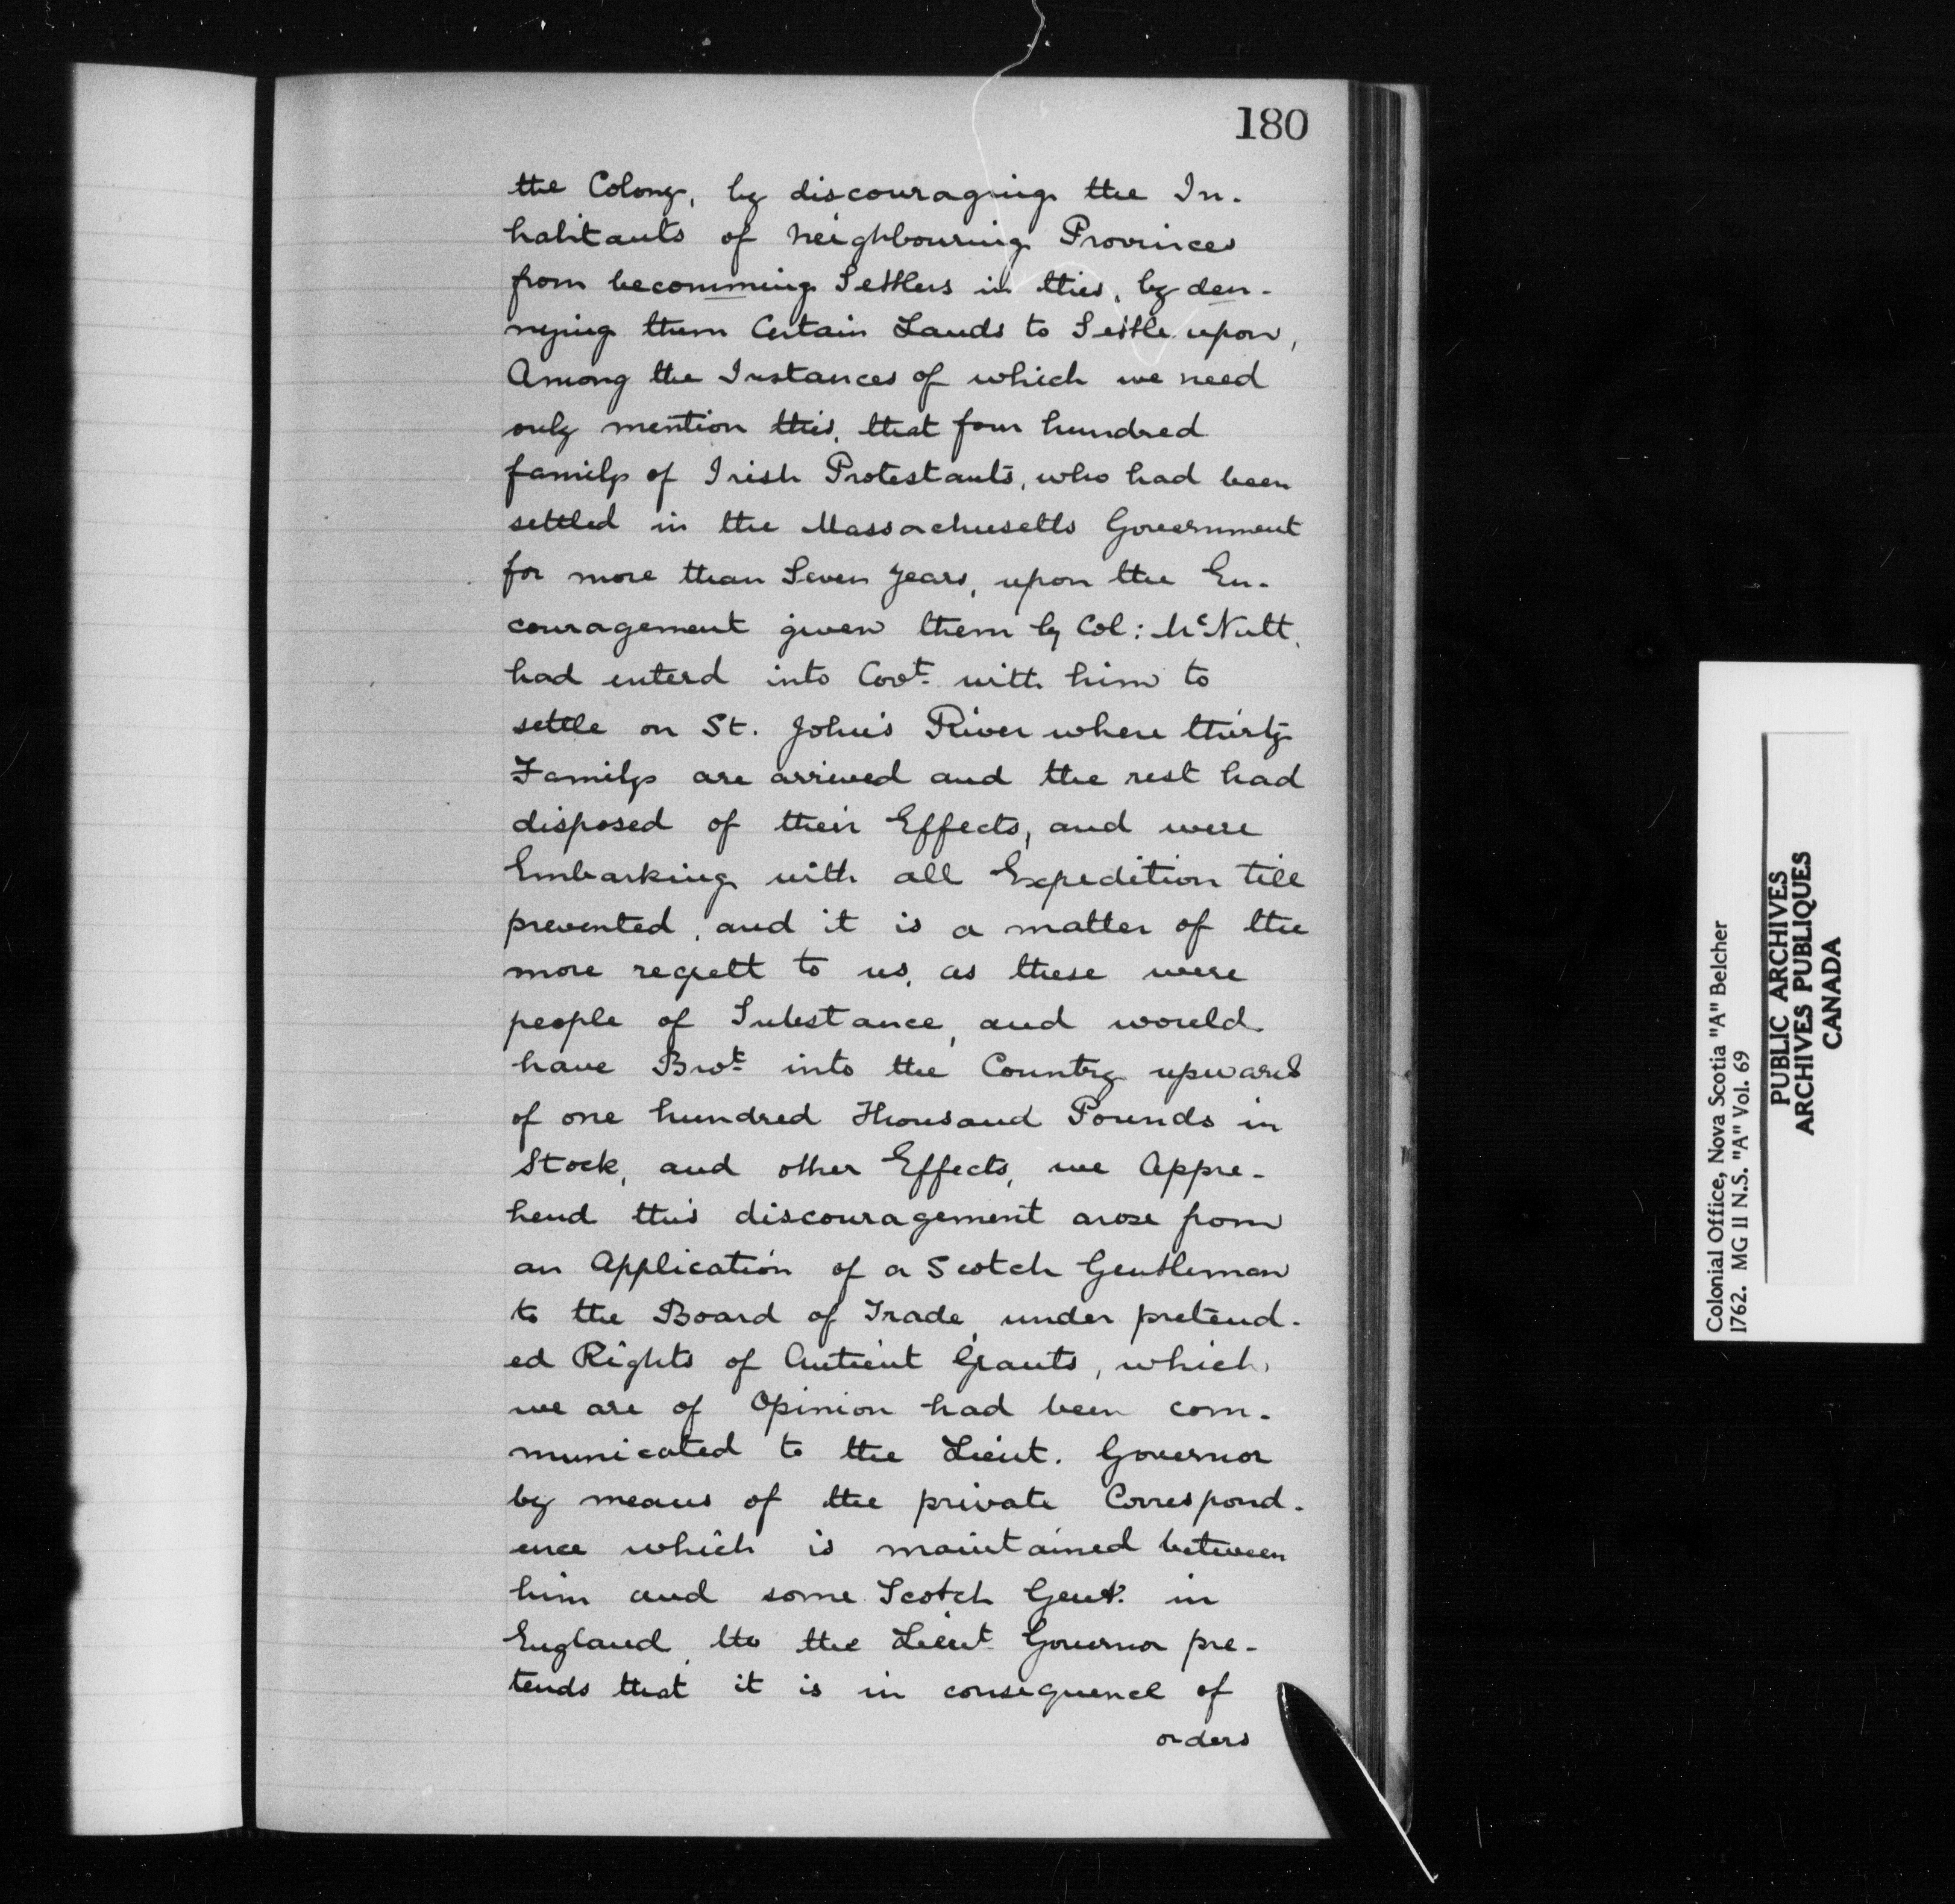 180
the Colony, by discouraging the In-
habitants of Neighbouring Provinces
from becomming Settlers in this, by den-
nying them Certain Lands to Settle upon,
Among the Instances of which we need
only mention this, that four hundred
familys of Irish Protestants, who had been
settled in the Massachusetts Government
for more than Seven years, upon the En-
couragement given them by Col: McNutt,
had enterd into Covt. with him to
settle on St. John's River where thirty
Familys are arrived and the rest had
disposed of their Effects, and were
Embarking with all Expedition till
prevented, and it is a matter of the
more regrett to us, as these were
people of Substance, and would
have Brot. into the Country upwards
of one hundred Thousand Pounds in
Stock, and other Effects, we Appre-
hend this discouragement arose from
an Application of a Scotch Gentleman
to the Board of Trade, under pretend-
ed Rights of Antient Grants, which,
we are of Opinion had been com-
municated to the Lieut. Governor
by means of the private Correspond-
ence which is maintained between
him and some Scotch Gent. in
England, tho the Lieut. Governor pre-
tends that it is in consequence of
orders
Colonial Office, Nova Scotia "A" Belcher
1762. MG 11 N.S. "A" Vol. 69
PUBLIC ARCHIVES
ARCHIVES PUBLIQUES
CANADA